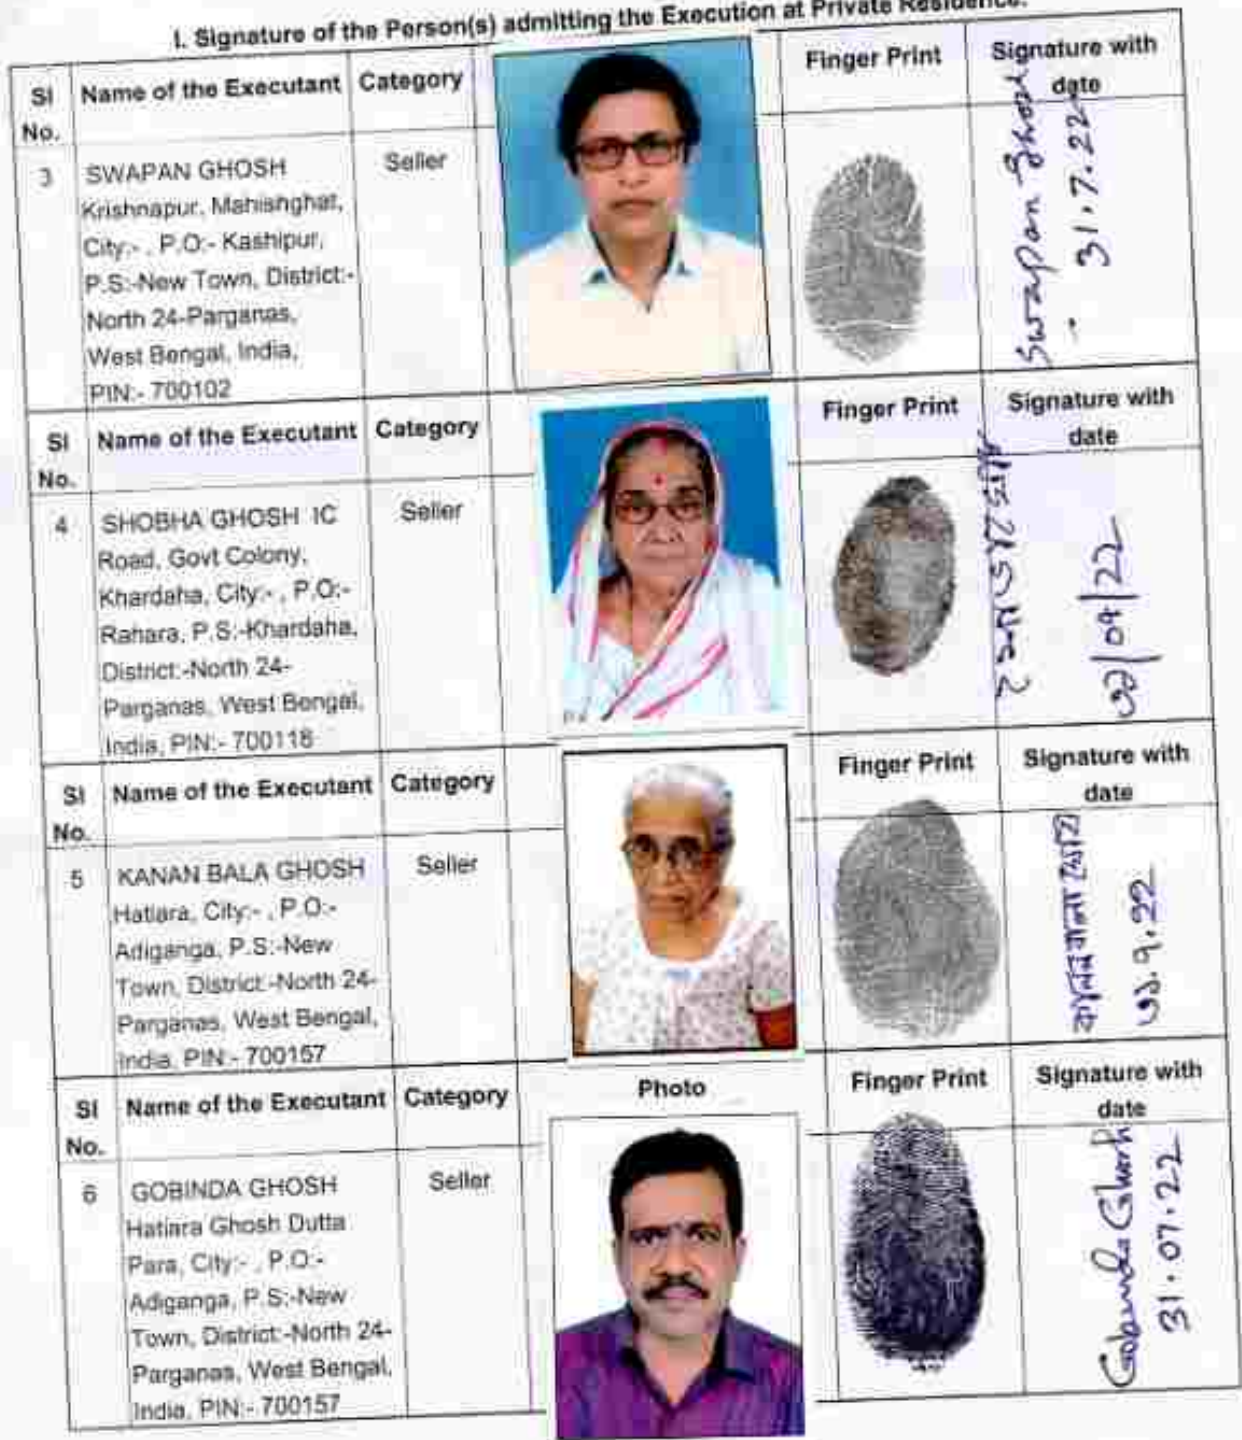 I. Signature of the Person(s) admitting the Execution at Private Residence.
Sl No. Name of the Executant Category Finger Print Signature with date
3 SWAPAN GHOSH Seller
Krishnapur, Mahishghat,
City:- , P.O:- Kashipur,
P.S:-New Town, District:-
North 24-Parganas,
West Bengal, India,
PIN:- 700102
Swapan Ghosh
31.7.22
Sl No. Name of the Executant Category Finger Print Signature with date
4 SHOBHA GHOSH IC Seller
Road, Govt Colony,
Khardaha, City:- , P.O:-
Rahara, P.S:-Khardaha,
District:-North 24-
Parganas, West Bengal,
India, PIN:- 700118
Sl No. Name of the Executant Category Finger Print Signature with date
5 KANAN BALA GHOSH Seller
Hatiara, City:- , P.O:-
Adiganga, P.S:-New
Town, District:-North 24-
Parganas, West Bengal,
India, PIN:- 700157
কাননবালা ঘোষ
৩১.৭.২২
Sl No. Name of the Executant Category Photo Finger Print Signature with date
6 GOBINDA GHOSH Seller
Hatiara Ghosh Dutta
Para, City:- , P.O:-
Adiganga, P.S:-New
Town, District:-North 24-
Parganas, West Bengal,
India, PIN:- 700157
Gobinda Ghosh
31.07.22